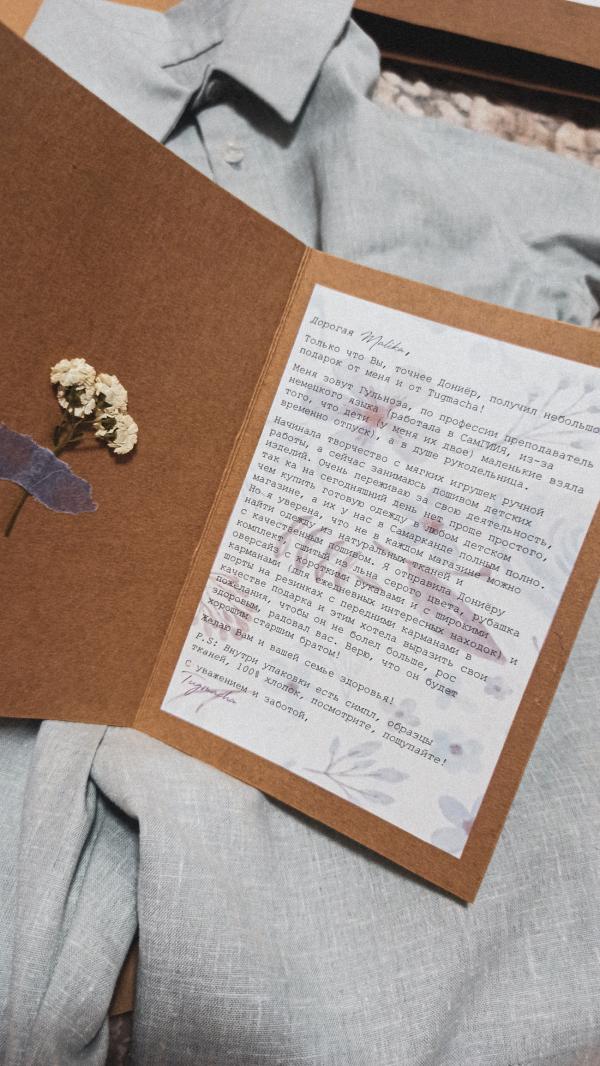 Дорогая Malika,
Только что Вы, точнее Дониёр, получил небольшо
подарок от меня и от Tugmacha!
Меня зовут Гульноза, по профессии преподаватель
немецкого языка (работала в СамГИИЯ, из-за
того, что дети (у меня их двое) маленькие взяла
временно отпуск), а в душе рукодельница.
Начинала творчество с мягких игрушек ручной
работы, а сейчас занимаюсь пошивом детских
изделий. Очень переживаю за свою деятельность,
так ка на сегодняшний день нет проще простого,
чем купить готовую одежду в любом детском
магазине, а их у нас в Самарканде полным полно.
Но я уверена, что не в каждом магазине можно
найти одежду из натуральных тканей и
с качественным пошивом. Я отправила Дониёру
комплект, сшитый из льна серого цвета, рубашка
оверсайз с короткими рукавами и с широкими
карманами (для ежедневных интересных находок) и
шорты на резинках с передними карманами в
качестве подарка и этим хотела выразить свои
пожелания, чтобы он не болел больше, рос
здоровым, радовал вас. Верю, что он будет
хорошим старшим братом!
Желаю Вам и вашей семье здоровья!
P.S: Внутри упаковки есть симпл, образцы
тканей, 100% хлопок, посмотрите, пощупайте!
С уважением и заботой,
Tugmacha